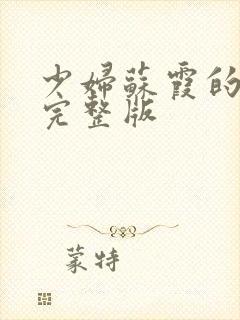 少婦蘇霞的
完整版
蒙特